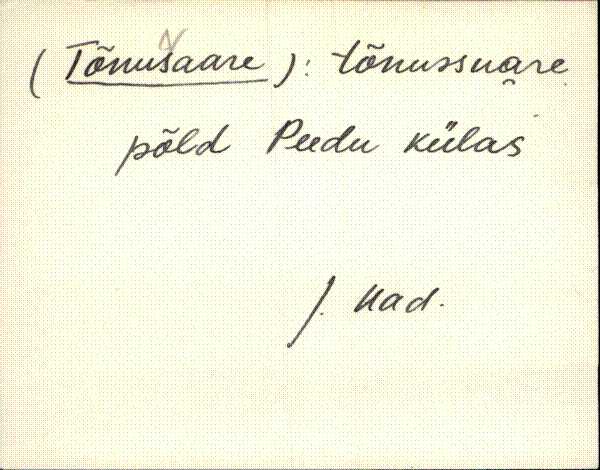 (Tõnusaare): tõnussuare
põld Peedu külas
J. Mad.